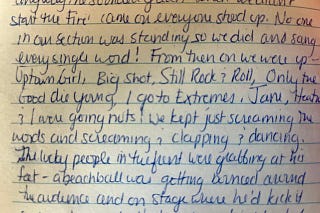 start the Fire" came on everyone stood up. No one
in our section was standing so we did and sang
every single word! From then on we were up -
Uptown Girl, Big Shot, Still Rock & Roll, Only the
Good die Young, I go to Extremes. Jane,
& I were going nuts! We kept just screaming the
words and screaming & clapping & dancing.
The lucky people in the front were grabbing at his
feet - a beachball was getting bounced around
the audience and on stage where he'd kick it